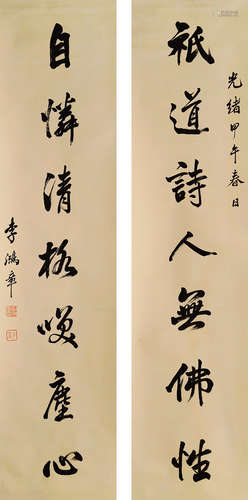 光緒甲午春日
祇道詩人無佛性
自憐清格嘆塵心
李鴻章